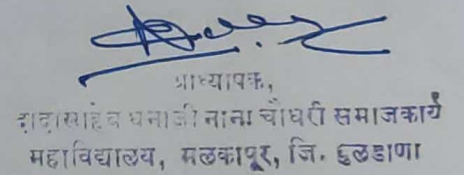 प्राध्यापक,
दादासाहेब धनाजी नाना चौधरी समाजकार्य
महाविद्यालय, मलकापूर, जि. बुलडाणा